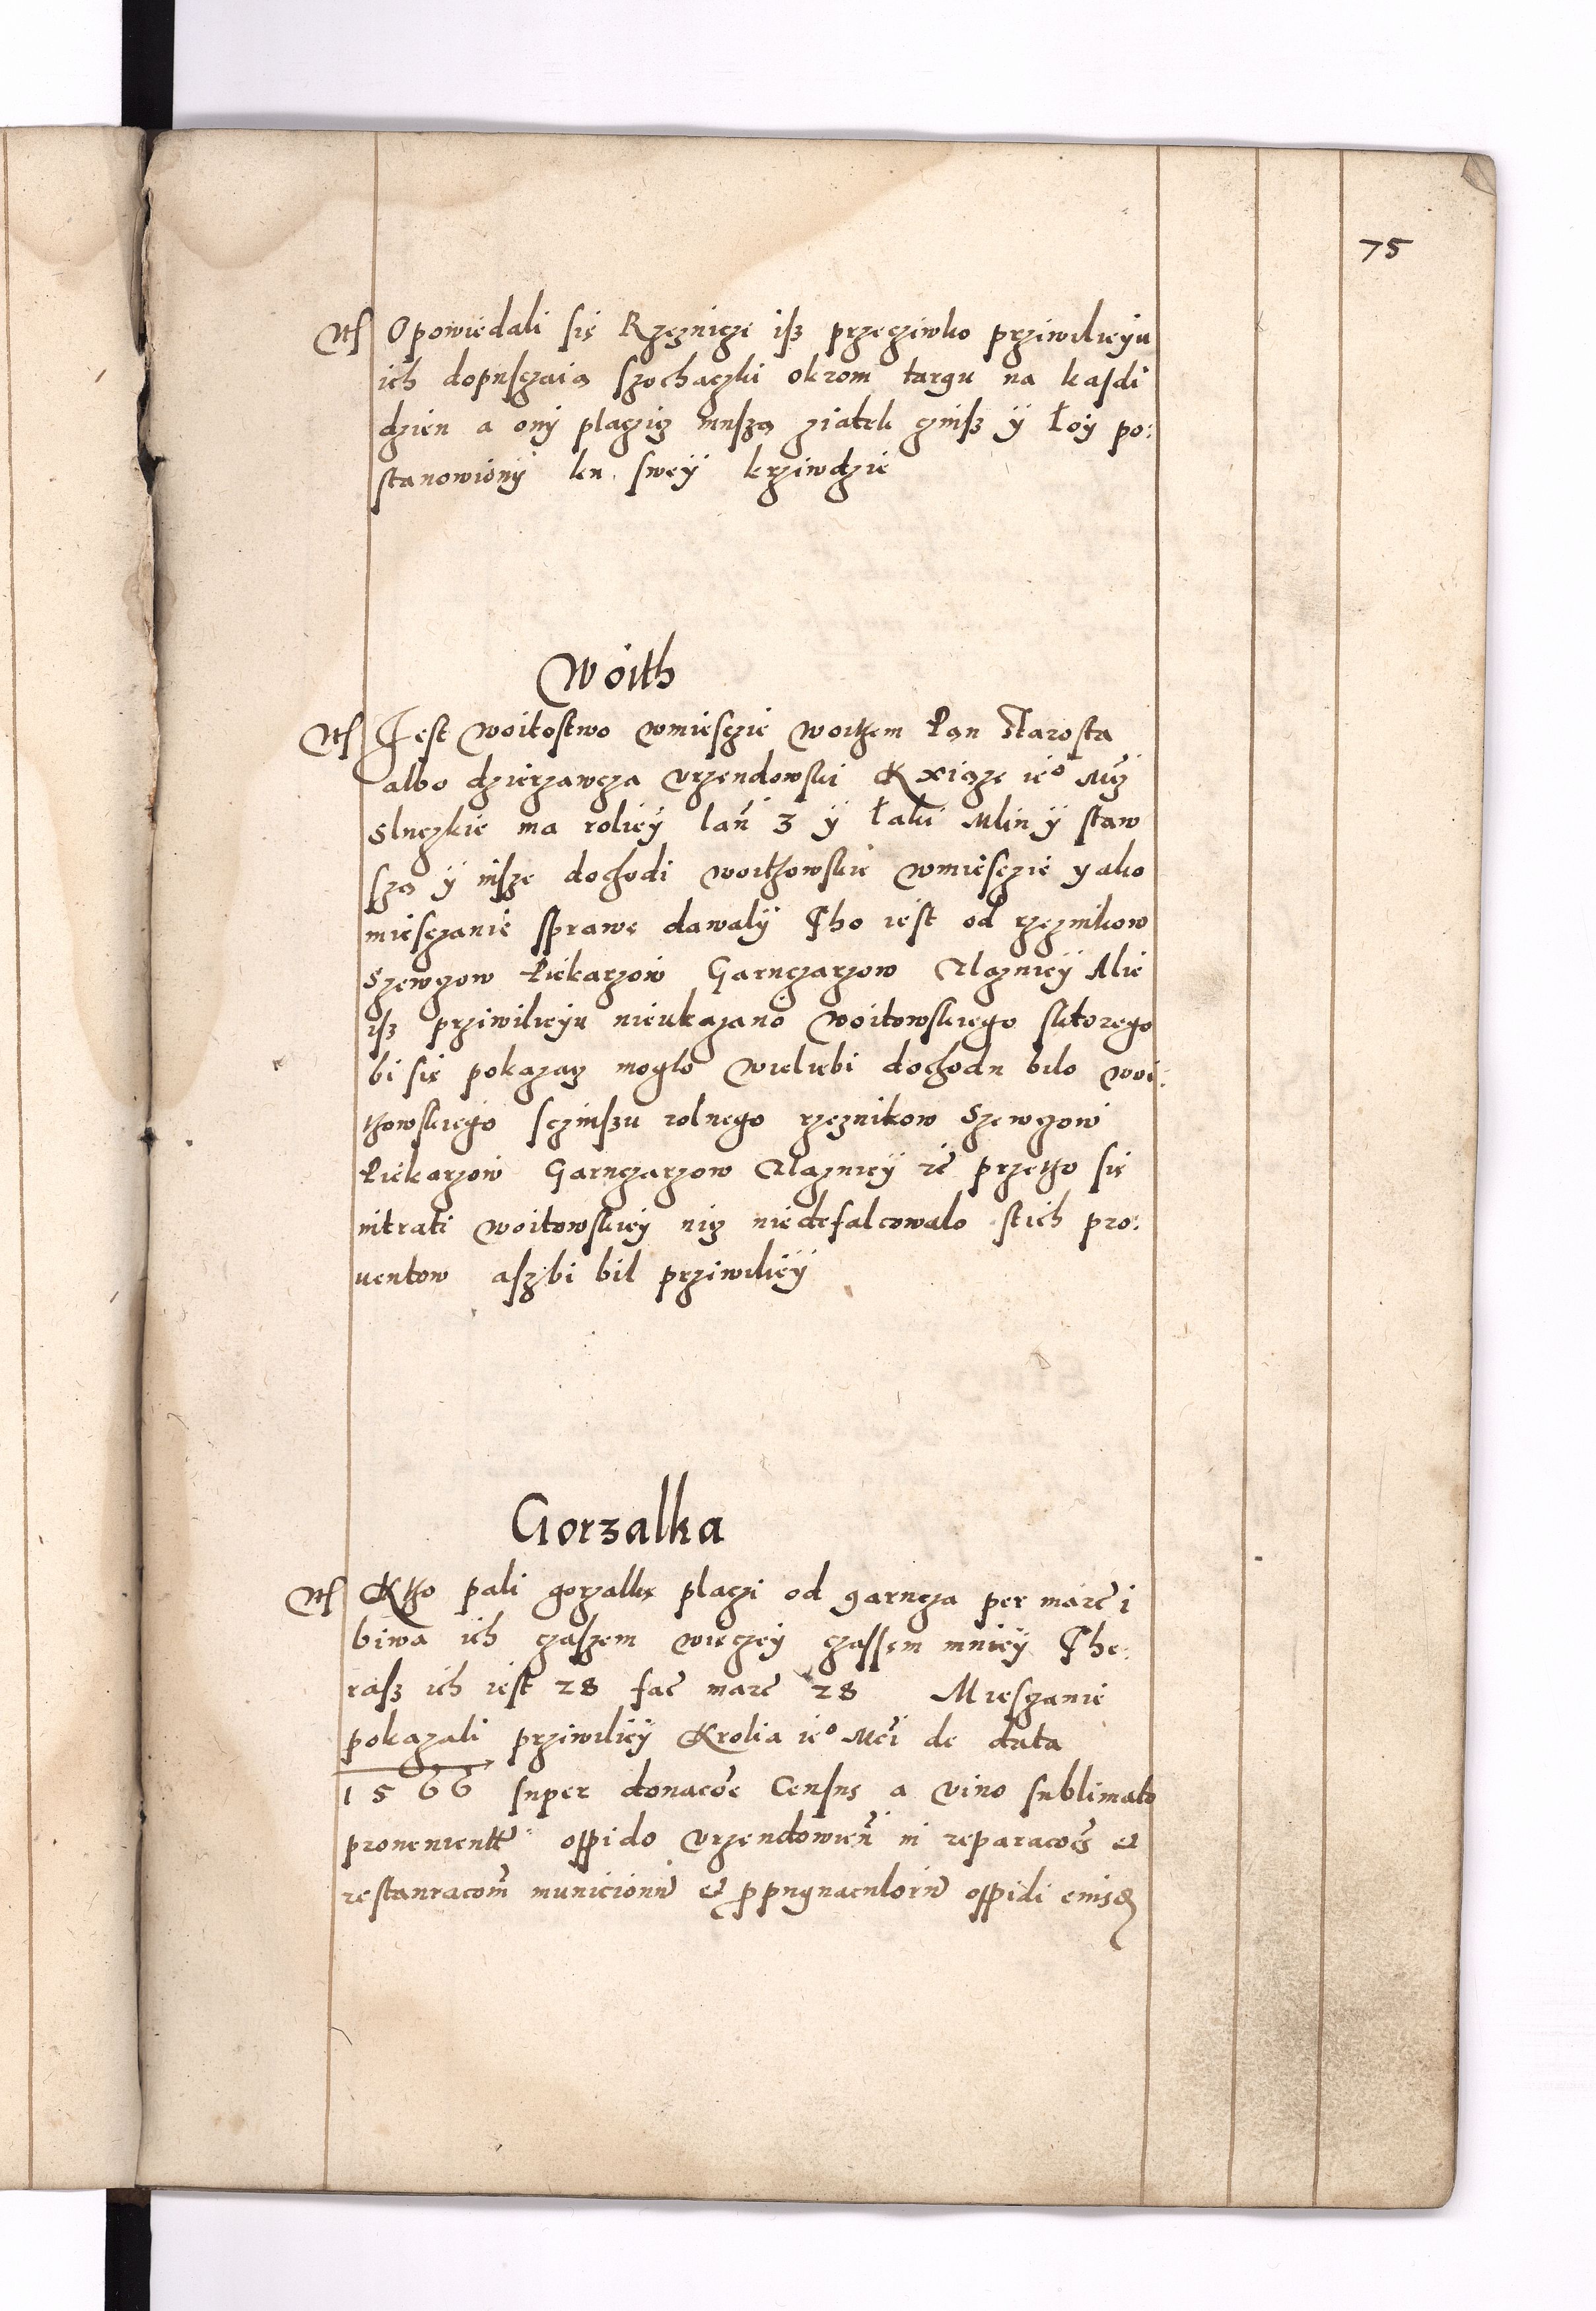 75
Opowiedali się Rzeznicze isz przecziwko prziwileyu
ich dopusczaią szochaczki okrom targu na kasdi
dzien a ony placzicz musza ziatek czinsz ÿ Łoÿ po:
stanowionÿ ku sweÿ krziwdzie
Woith
Jest woitostwo wmiesczie woithem Pan Starosta
albo dzierzawcza vrzendowski Kxiąze ieº Mcz
Sluczkie ma roliey lan 3 ÿ łaki Mlin ÿ staw
szą ÿ insze dochodi woithowskie wmiesczie yako
miesczanie sprawę dawalÿ Tho iest od rzeznikow
Szewczow Piekarzow Garnczarzow Alie
isz prziwileyu nieukazano woitowskiego ktorego
bi się pokazacz moglo wieliebi dochodu bilo woi:
thowskiego sczinszu rolnego rzeznikow Szewczow
Piekarzow Garnczarzow przetho się
intrati woitowskiey nicz niedefalcowalo stich pro:
uentow aszbi bil prziwiliÿ
Gorzalka
Ktho pali gorzalkę placzi od garncza per marc̃ i
biwa ich czaszem wieczey czassem mnieÿ The:
rasz ich iest 28 fac̃ marc̃ 28 Miesczanie
pokazali prziwiliÿ Krolia ieº Mci de data
1566 super donacõe Census a vino sublimato
prouenient̃ oppido vrzendowien̄ in reparacões et
restauracom̃ municionũ et ppugnaculorũ oppidi eiusdē